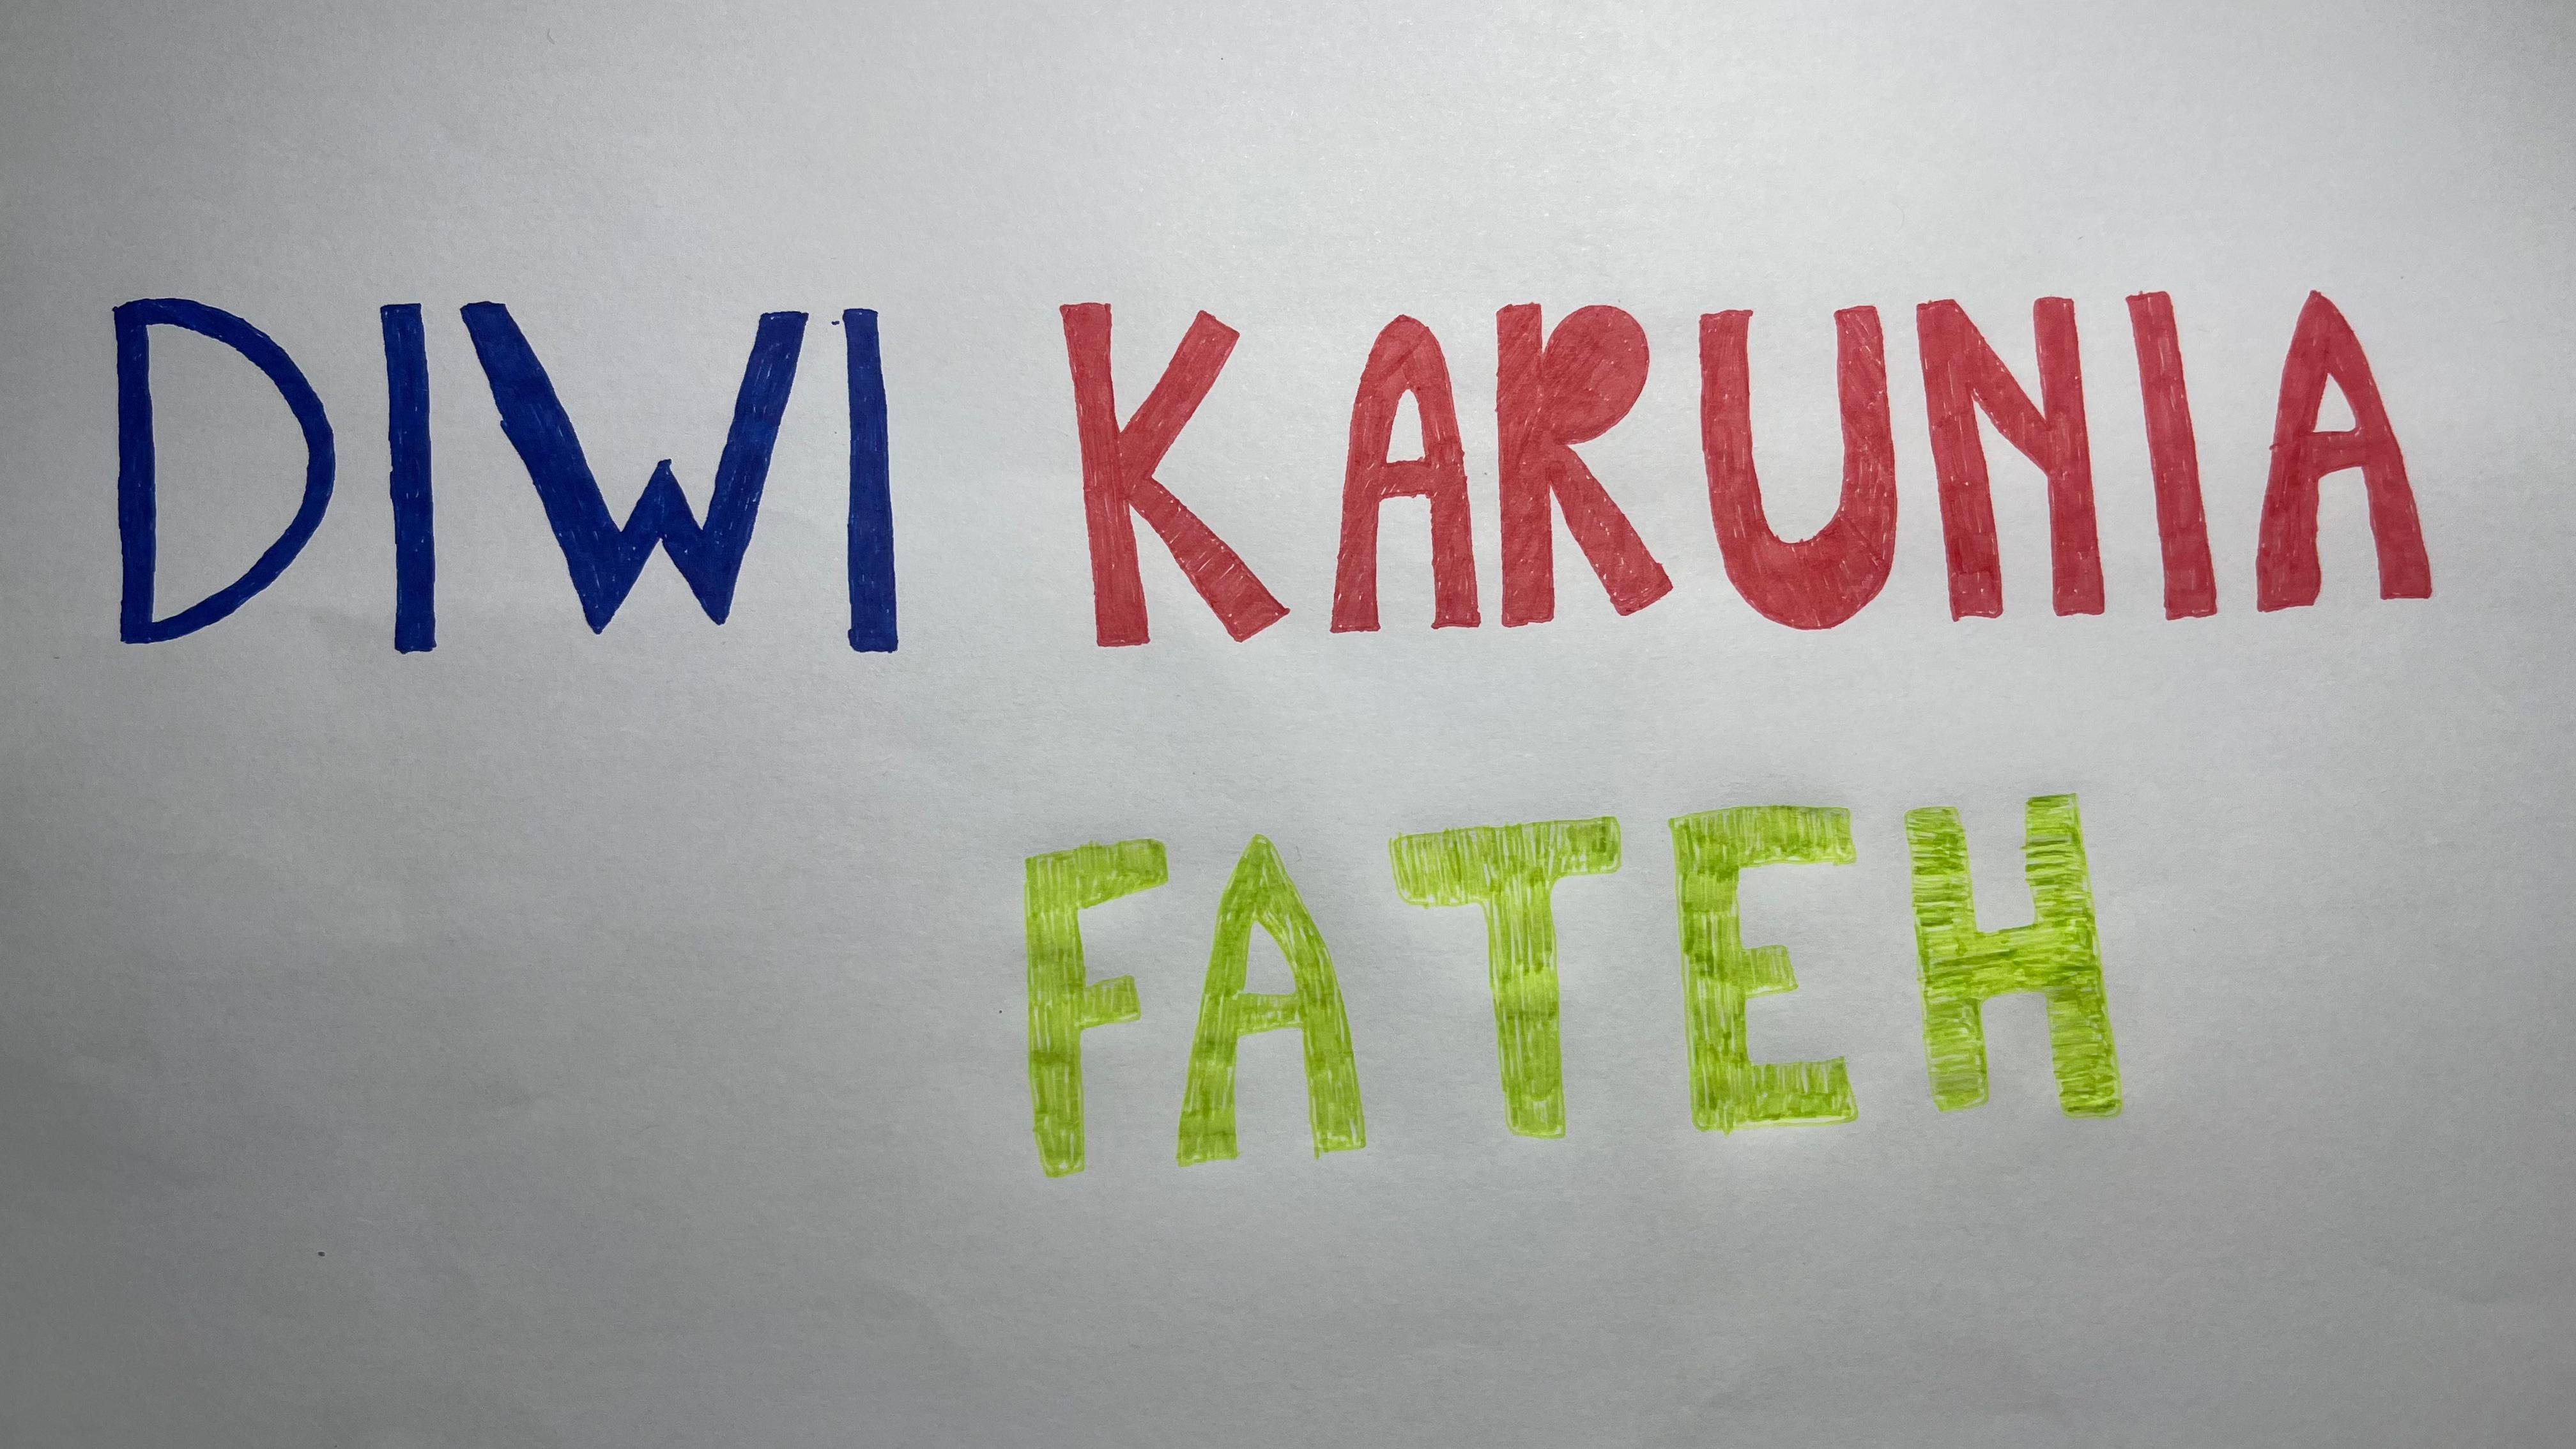 DIWI KARUNIA
FATEH